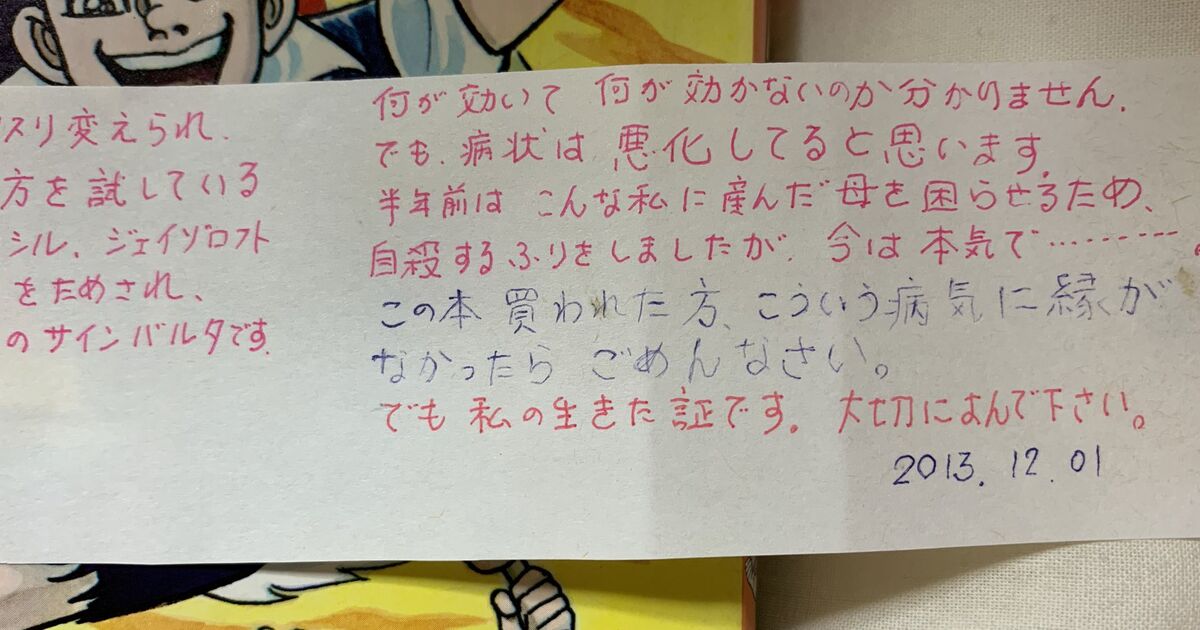 スリ変えられ.
方を試している
シル、ジェイゾロフト
をためされ、
のサインバルタです.
何が効いて 何が効かないのか分かりません.
でも.病状は 悪化してると思います.
半年前は こんな私に産んだ母を困らせるため、
自殺するふりをしましたが. 今は本気で………。
この本 買われた方、こういう病気に縁が
なかったら ごめんなさい。
でも 私の生きた証です。大切によんで下さい。
2013.12.01